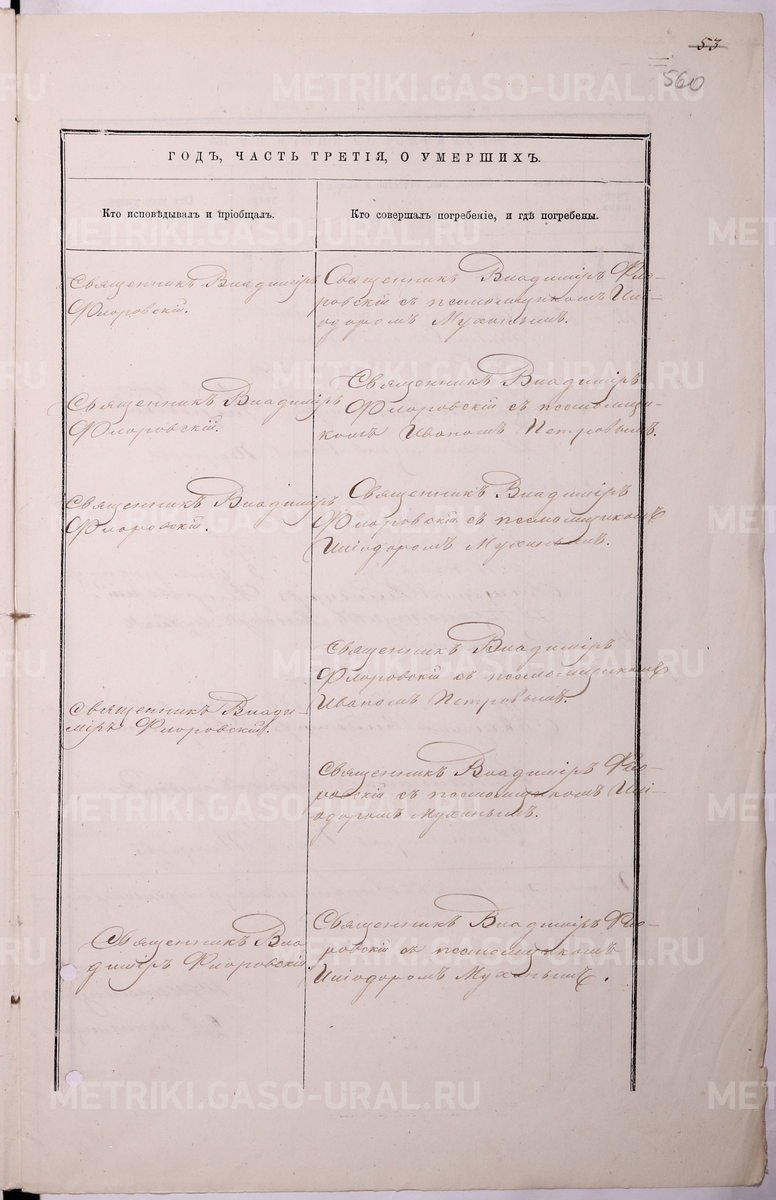 53
560
ГОДЪ, ЧАСТЬ ТРЕТІЯ, О УМЕРШИХЪ.
Кто исповѣдывалъ и пріобщалъ.
Кто совершалъ погребеніе, и гдѣ погребены.
Священникъ Владиміръ
Флоровскій.
Священникъ Владиміръ Фло-
ровскій съ псаломщикомъ Иліо-
доромъ Мухинымъ.
Священникъ Владиміръ
Флоровскій.
Священникъ Владиміръ
Флоровскій съ псаломщи-
комъ Иваномъ Петровымъ.
Священникъ Владиміръ
Флоровскій.
Священникъ Владиміръ
Флоровскій съ псаломщикомъ
Иліодоромъ Мухинымъ.
Священникъ Влади-
міръ Флоровскій.
Священникъ Владиміръ
Флоровскій съ псаломщикомъ
Иваномъ Петровымъ.
Священникъ Владиміръ Фло-
ровскій съ псаломщикомъ Илі-
одоромъ Мухинымъ.
Священникъ Вла
диміръ Флоровскій
Священникъ Владиміръ Фло-
ровскій съ псаломщикомъ
Иліодоромъ Мухинымъ.
METRIKI.GASO-URAL.RU